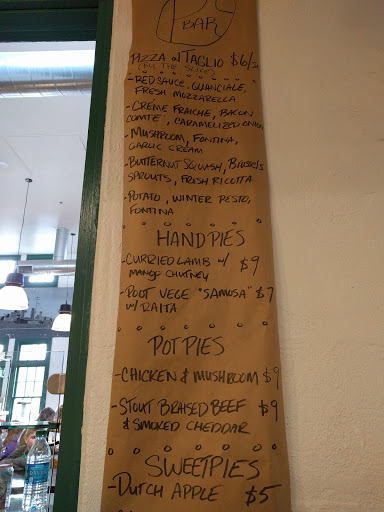 BAR
PIZZA al TAGLIO $6/
(BY THE SLICE)
-RED SAUCE, GUANCIALE,
FRESH MOZZARELLA
-CRÈME FRAICHE, BACON,
COMTE, CARAMELIZED ONION
-MUSHROOM, FONTINA,
GARLIC CREAM
-BUTTERNUT SQUASH, BRUSSELS
SPROUTS, FRESH RICOTTA
-POTATO, WINTER PESTO,
FONTINA
HANDPIES
-CURRIED LAMB W/ $9
MANGO CHUTNEY
-ROOT VEGE "SAMOSA" $7
W/ RAITA
POTPIES
-CHICKEN & MUSHROOM $9
-STOUT BRAISED BEEF $9
& SMOKED CHEDDAR
SWEETPIES
-DUTCH APPLE $5